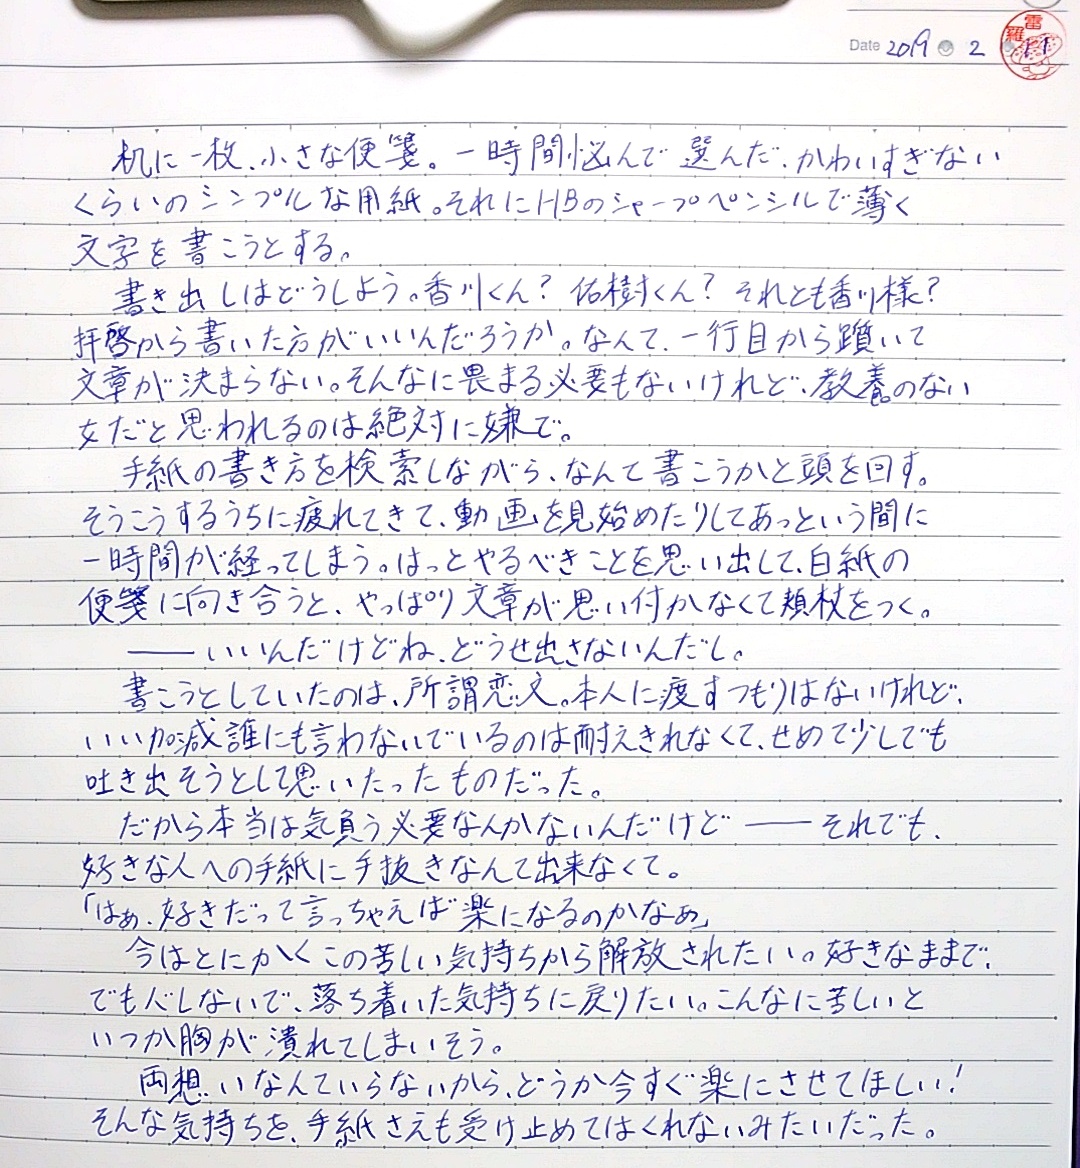 Date 2019 2 11
雷
羅
机に一枚、小さな便箋。一時間悩んで選んだ、かわいすぎない
くらいのシンプルな用紙。それにHBのシャープペンシルで薄く
文字を書こうとする。
書き出しはどうしよう。香川くん？佑樹くん？それとも香川様？
拝啓から書いた方がいいんだろうか。なんて、一行目から躓いて
文章が決まらない。そんなに畏まる必要もないけれど、教養のない
女だと思われるのは絶対に嫌で。
手紙の書き方を検索しながら、なんて書こうかと頭を回す。
そうこうするうちに疲れてきて、動画を見始めたりしてあっという間に
一時間が経ってしまう。はっとやるべきことを思い出して、白紙の
便箋に向き合うと、やっぱり文章が思い付かなくて頬杖をつく。
――いいんだけどね、どうせ出さないんだし。
書こうとしていたのは、所謂恋文。本人に渡すつもりはないけれど、
いい加減誰にも言わないでいるのは耐えきれなくて、せめて少しでも
吐き出そうとして思いたったものだった。
だから本当は気負う必要なんかないんだけど――それでも、
好きな人への手紙に手抜きなんて出来なくて。
「はぁ、好きだって言っちゃえば楽になるのかなぁ」
今はとにかくこの苦しい気持ちから解放されたい。好きなままで、
でも心しないで、落ち着いた気持ちに戻りたい。こんなに苦しいと
いつか胸が潰れてしまいそう。
両想いなんていらないから、どうか今すぐ楽にさせてほしい！
そんな気持ちを、手紙さえも受け止めてはくれないみたいだった。